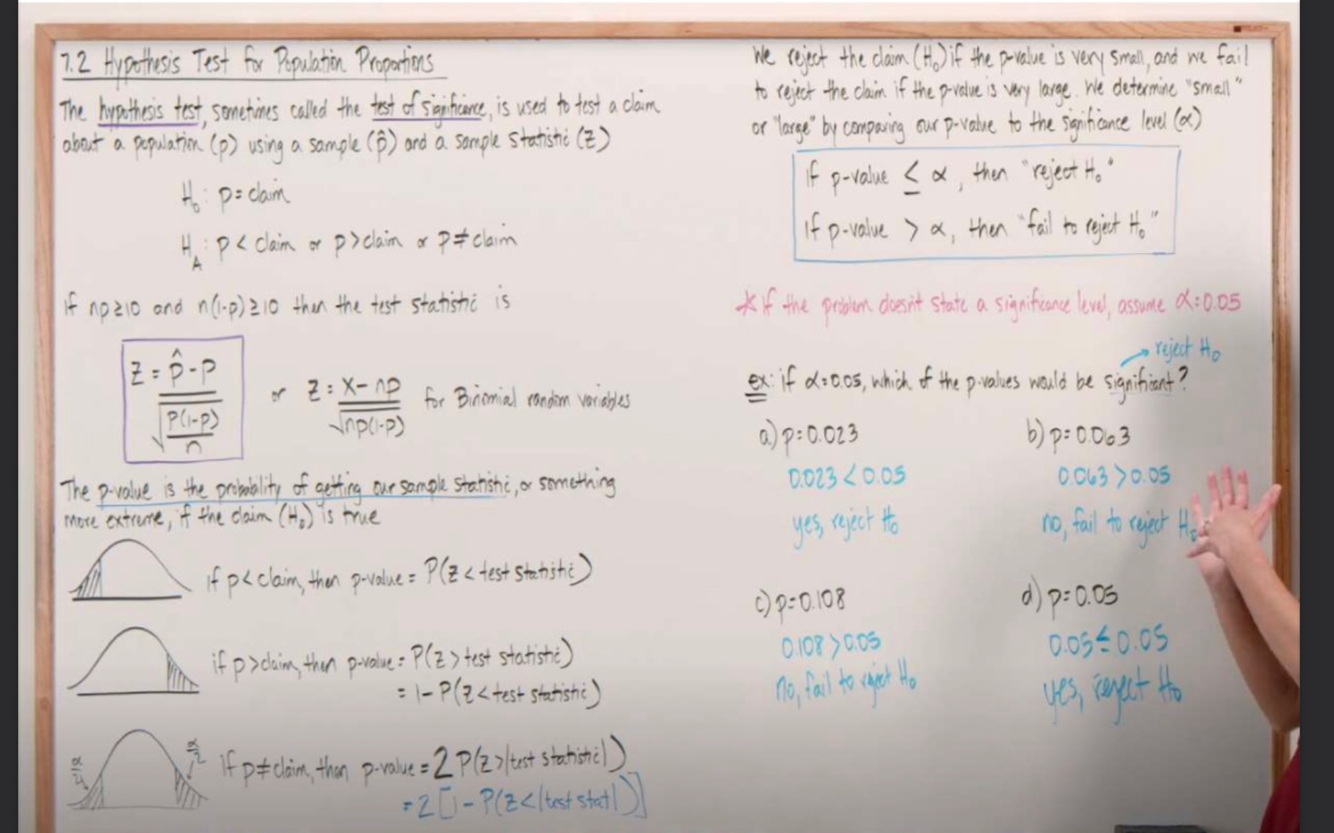 7.2 Hypothesis Test for Population Proportions
The hypothesis test, sometimes called the test of significance, is used to test a claim
about a population (p) using a sample (p̂) and a sample statistic (Z)
H₀: p = claim
H_A: p < claim or p > claim or p ≠ claim
if np ≥ 10 and n(1-p) ≥ 10 then the test statistic is
Z = (p̂ - p) / √(p(1-p)/n) or Z = (X - np) / √(np(1-p)) for Binomial random variables
The p-value is the probability of getting our sample statistic, or something
more extreme, if the claim (H₀) is true
if p < claim, then p-value = P(Z < test statistic)
if p > claim, then p-value = P(Z > test statistic)
= 1 - P(Z < test statistic)
α/2 α/2 if p ≠ claim, then p-value = 2 P(Z > |test statistic|)
= 2 [1 - P(Z < |test stat|)]
We reject the claim (H₀) if the p-value is very small, and we fail
to reject the claim if the p-value is very large. We determine "small"
or "large" by comparing our p-value to the significance level (α)
if p-value ≤ α, then "reject H₀"
if p-value > α, then "fail to reject H₀"
* if the problem doesn't state a significance level, assume α = 0.05
reject H₀
ex: if α = 0.05, which of the p-values would be significant?
a) p = 0.023 b) p = 0.063
0.023 < 0.05 0.063 > 0.05
yes, reject H₀ no, fail to reject H₀
c) p = 0.108 d) p = 0.05
0.108 > 0.05 0.05 ≤ 0.05
no, fail to reject H₀ yes, reject H₀